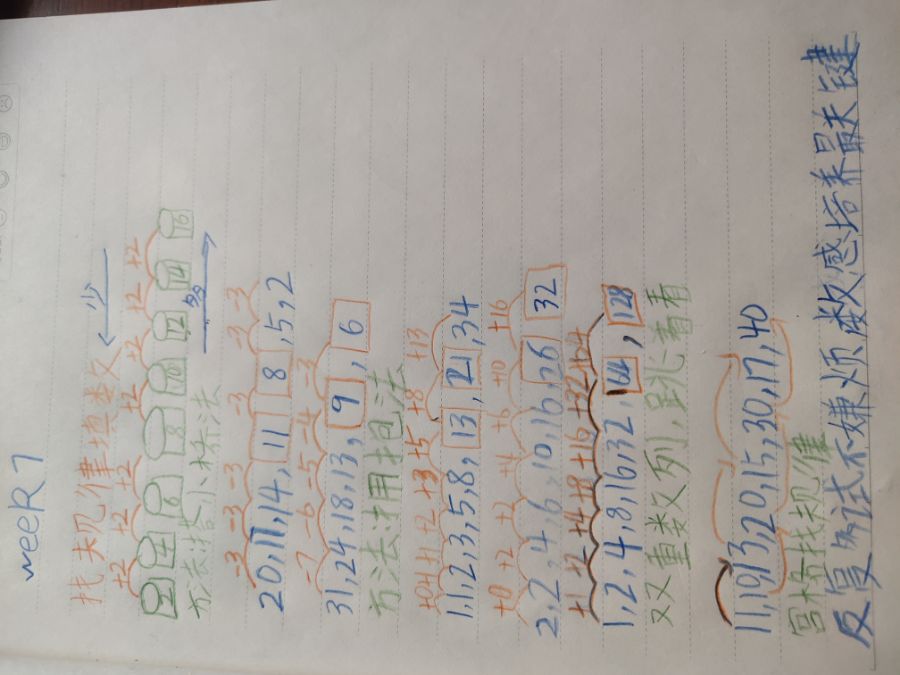 week 7
找规律填数 ← 少
+2 +2 +2 +2 +2 +2 +2
2 4 6 8 10 12 14 16
方法:搭小桥法 多
-3 -3 -3 -3 -3 -3
20,17,14,11,8,5,2
-7 -6 -5 -4 -3
31,24,18,13,9,6
方法:用抱法
+0 +1 +1 +2 +3 +5 +8 +13
1,1,2,3,5,8,13,21,34
+0 +2 +2 +4 +6 +10 +16
2,2,4,6,10,16,26,32
+1 +2 +4 +8 +16 +32 +64
1,2,4,8,16,32,64,128
双重数列,跳着看
11,19,13,20,15,30,17,40
宫格找规律
反复尝试不嫌烦,数感培养最关键